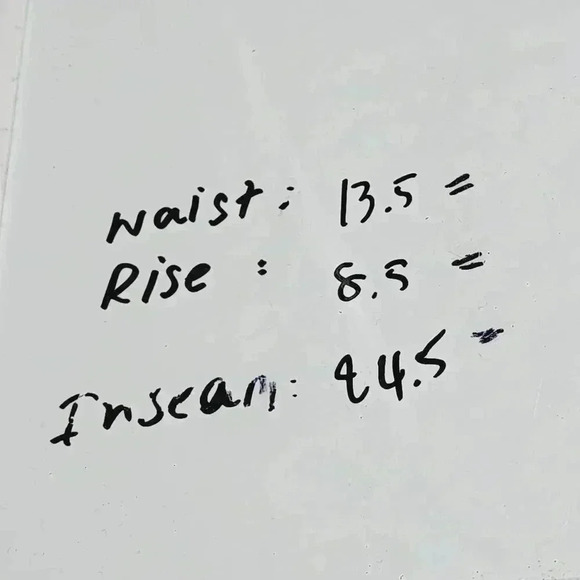 Waist: 13.5 =
Rise : 8.5 =
Inseam: 24.5 =